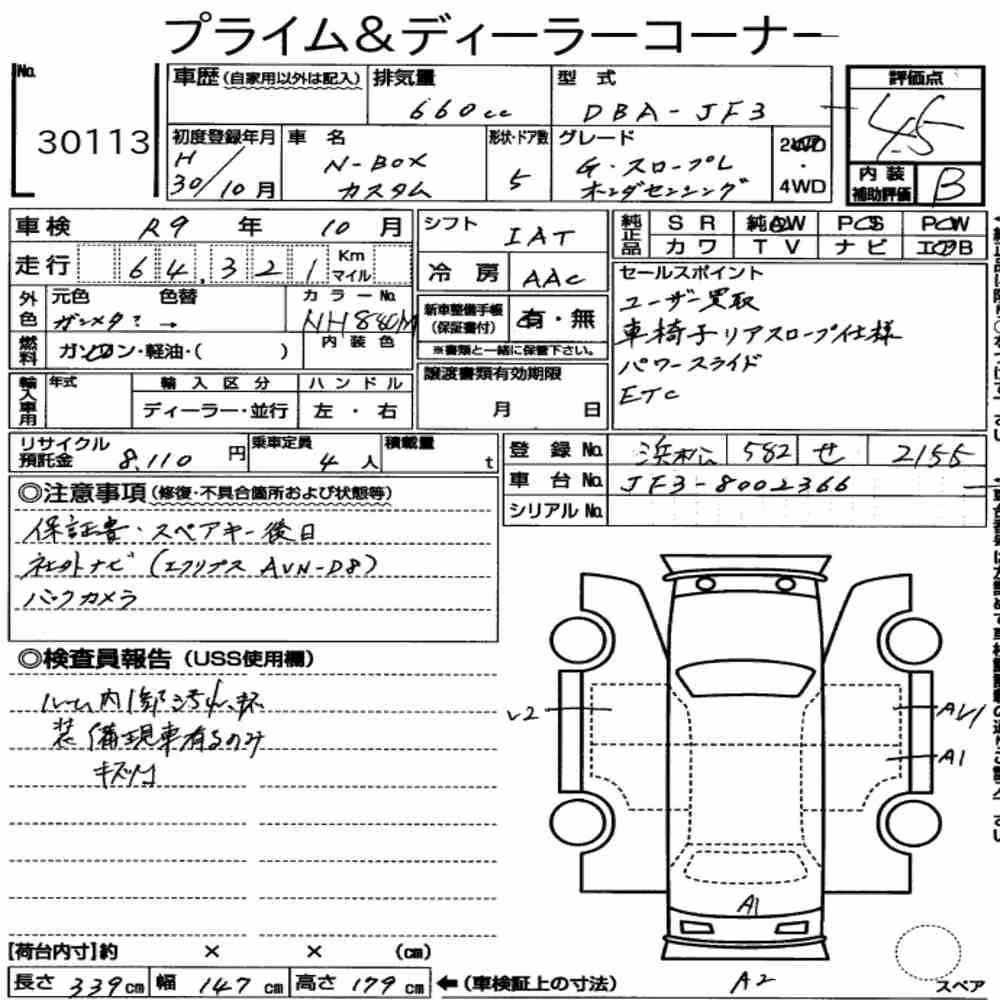 プライム&ディーラーコーナー
No.
30113
車歴(自家用以外は記入)
排気量
660cc
型 式
DBA-JF3
評価点
4.5
初度登録年月
H
30/10月
車 名
N-BOX
カスタム
形状・ドア数
5
グレード
G・スロープL
ホンダセンシング
2WD
・
4WD
内 装
補助評価
B
車検 R9 年 10 月
走行 64,321 Km マイル
シフト IAT
冷 房 AAC
純正品
S R 純AW P・S P・W
カ ワ T V ナ ビ エアB
外色
元色 色替
ガンメタ? →
カラーNo.
NH880M
内 装 色
燃料
ガソリン・軽油・( )
新車整備手帳
(保証書付)
有・無
※書類と一緒に保管下さい。
セールスポイント
ユーザー買取
車椅子リアスロープ仕様
パワースライド
ETC
輸入車用
年式
輸 入 区 分
ディーラー・並行
ハ ン ド ル
左 ・ 右
譲渡書類有効期限
月 日
リサイクル
預託金 8,110 円
乗車定員
4 人
積載量
t
登 録 No. 浜松 582 せ 2155
車 台 No. JF3-8002366
シリアルNo.
◎注意事項(修復・不具合箇所および状態等)
保証書・スペアキー後日
社外ナビ(エクリプス AVN-D8)
バックカメラ
◎検査員報告(USS使用欄)
ルーム内1部汚れ
装備現車有るのみ
キズ
V2
A1
A1
A2
スペア
[荷台内寸]約 × × (cm)
長さ 339cm 幅 147cm 高さ 179cm ←(車検証上の寸法)